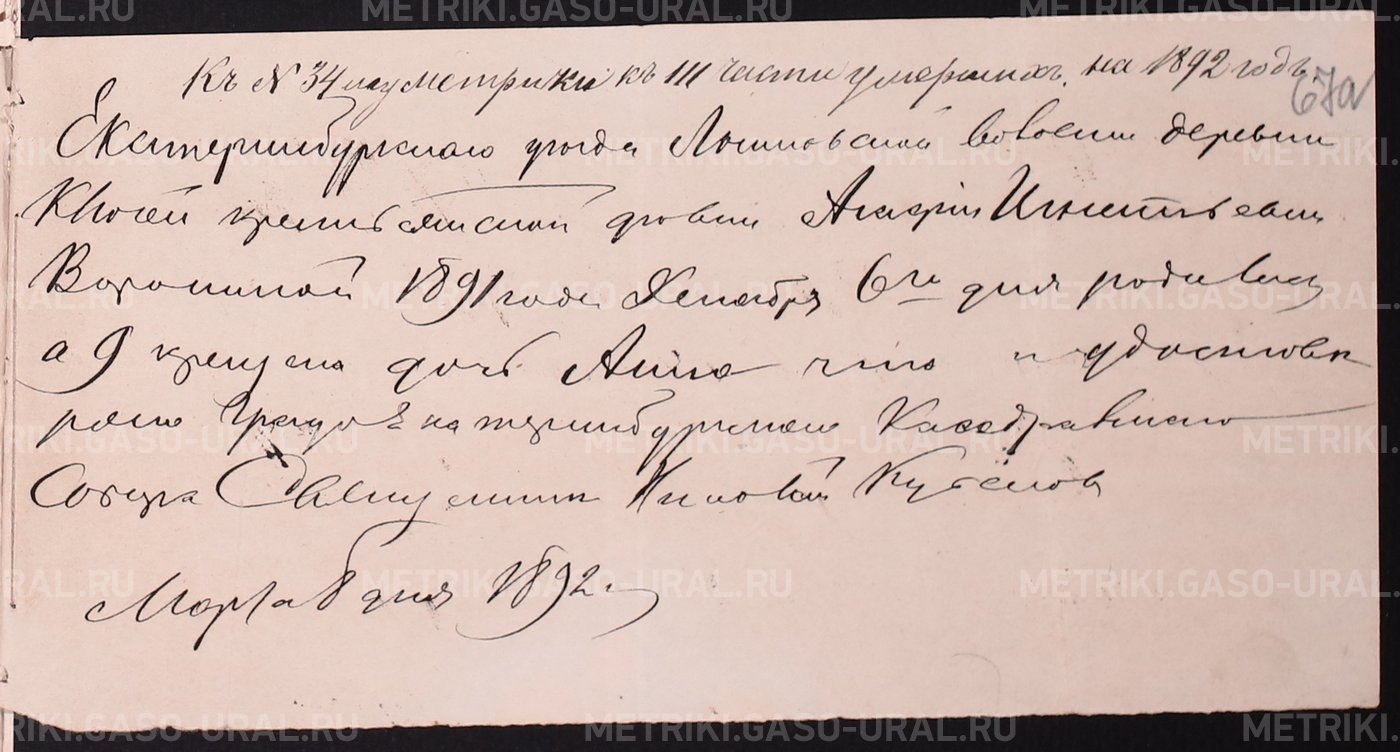 Къ N 34му метрики къ III части умершихъ. на 1892 годъ.
67а
Екатеринбургскаго уезда Логиновской волости деревни
Ключей крестьянской девки Агафьи Игнатьевой
Ворониной 1891 года Декабря 6го дня родилась
а 9 крещена дочь Анна что и удостове
ряю Градо Екатеринбургскаго Кафедральнаго
Собора Священник Николай
Марта 8 дня 1892 г.
METRIKI.GASO-URAL.RU